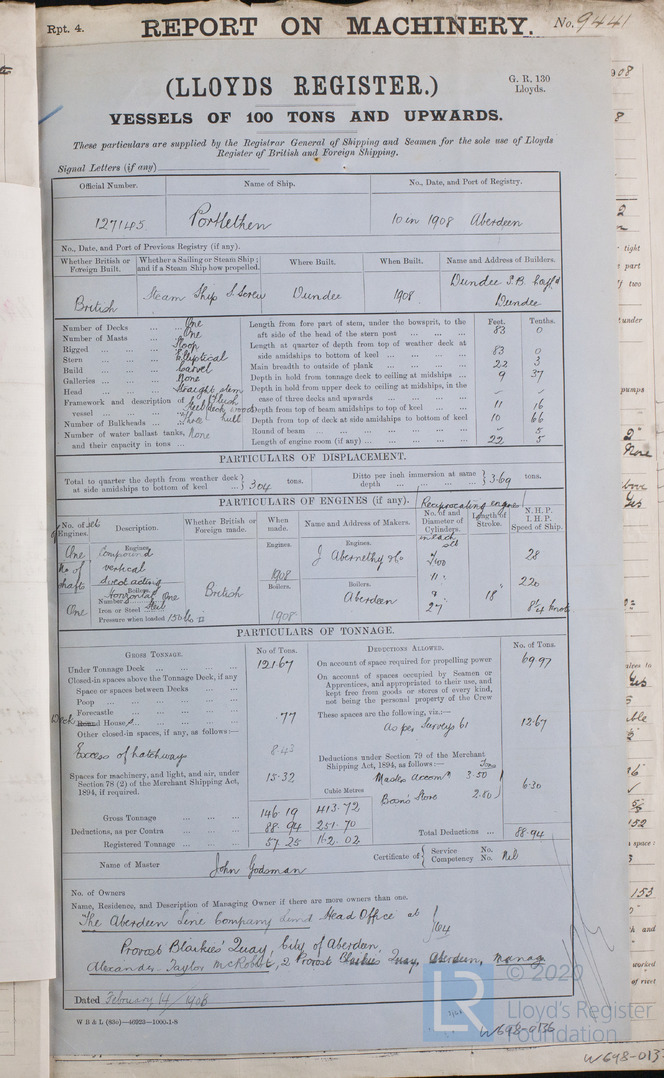 Rpt. 4. REPORT ON MACHINERY. No. 9441
(LLOYDS REGISTER.)
G. R. 130
Lloyds.
VESSELS OF 100 TONS AND UPWARDS.
These particulars are supplied by the Registrar General of Shipping and Seamen for the sole use of Lloyds
Register of British and Foreign Shipping.
Signal Letters (if any)
Official Number. Name of Ship. No., Date, and Port of Registry.
127145 Portlethen 10 in 1908 Aberdeen
No., Date, and Port of Previous Registry (if any).
Whether British or Foreign Built. Whether a Sailing or Steam Ship; and if a Steam Ship how propelled. Where Built. When Built. Name and Address of Builders.
British Steam Ship S. Screw Dundee 1908 Dundee S.B. Coy Ld
Dundee
Number of Decks ... One
Number of Masts ... One
Rigged ... Sloop
Stern ... Elliptical
Build ... Carvel
Galleries ... None
Head ... Straight stem
Framework and description of vessel ... Steel
Number of Bulkheads ... Three
Number of water ballast tanks, and their capacity in tons ... None
Feet. Tenths.
Length from fore part of stem, under the bowsprit, to the aft side of the head of the stern post ... 83 0
Length at quarter of depth from top of weather deck at side amidships to bottom of keel ... 83 0
Main breadth to outside of plank ... 22 3
Depth in hold from tonnage deck to ceiling at midships ... 9 37
Depth in hold from upper deck to ceiling at midships, in the case of three decks and upwards ...
Depth from top of beam amidships to top of keel ... 11 16
Depth from top of deck at side amidships to bottom of keel 10 66
Round of beam ... 5
Length of engine room (if any) ... 22 5
PARTICULARS OF DISPLACEMENT.
Total to quarter the depth from weather deck at side amidships to bottom of keel ... 304 tons. Ditto per inch immersion at same depth ... 3.69 tons.
PARTICULARS OF ENGINES (if any). Reciprocating engine
No. of sets of Engines. Description. Whether British or Foreign made. When made. Name and Address of Makers. No. of and Diameter of Cylinders. in each set Length of Stroke. N.H.P. I.H.P. Speed of Ship.
Engines. Engines. Engines.
One Compound J Abernethy & Co Two 28
No of shafts vertical
direct acting 1908 11" 220
Boilers. Boilers. Boilers.
Horizontal British Aberdeen 18"
One Number One
Iron or Steel Steel 27" 8¼ knots
Pressure when loaded 130 lbs 1908
PARTICULARS OF TONNAGE.
GROSS TONNAGE. No of Tons. DEDUCTIONS ALLOWED. No. of Tons.
Under Tonnage Deck ... 121.67
On account of space required for propelling power 69.97
Closed-in spaces above the Tonnage Deck, if any
Space or spaces between Decks ...
Poop ...
Forecastle ...
Deck Round House ... .77
Other closed-in spaces, if any, as follows:—
Excess of hatchways 8.43
Spaces for machinery, and light, and air, under Section 78 (2) of the Merchant Shipping Act, 1894, if required. 15.32
On account of spaces occupied by Seamen or Apprentices, and appropriated to their use, and kept free from goods or stores of every kind, not being the personal property of the Crew
These spaces are the following, viz.:—
As per Surveys 61 12.67
Deductions under Section 79 of the Merchant Shipping Act, 1894, as follows:—
Tons
Master Accomn 3.50
Boson's Store 2.80 6.30
Cubic Metres
Gross Tonnage ... 146.19 413.72
Deductions, as per Contra ... 88.94 251.70
Registered Tonnage ... 57.25 162.02
Total Deductions ... 88.94
Name of Master John Godsman Certificate of Service No. Competency No. Nil
No. of Owners
Name, Residence, and Description of Managing Owner if there are more owners than one.
The Aberdeen Lime Company Limd Head Office at
Provost Blaikies' Quay, City of Aberdeen, 64
Alexander Taylor McRobert, 2 Provost Blaikies Quay, Aberdeen, Manag
Dated February 14 / 1908
W B & L (83o)—46923—1000-1-8
© 2020
LR
Lloyd's Register
Foundation
W698-0136